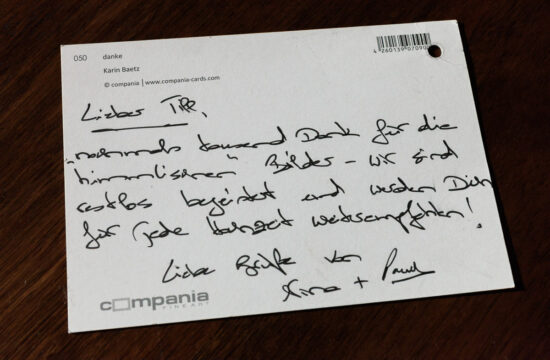 050 danke
4 260139 07090
Karin Baetz
© compania | www.compania-cards.com
Lieber
nochmals tausend Dank für die
"himmlischen" Bilder – wir sind
restlos begeistert und werden Dich
für jede Hochzeit weiterempfehlen!
Liebe Grüße von
Nina + Paul
compania
FINE ART